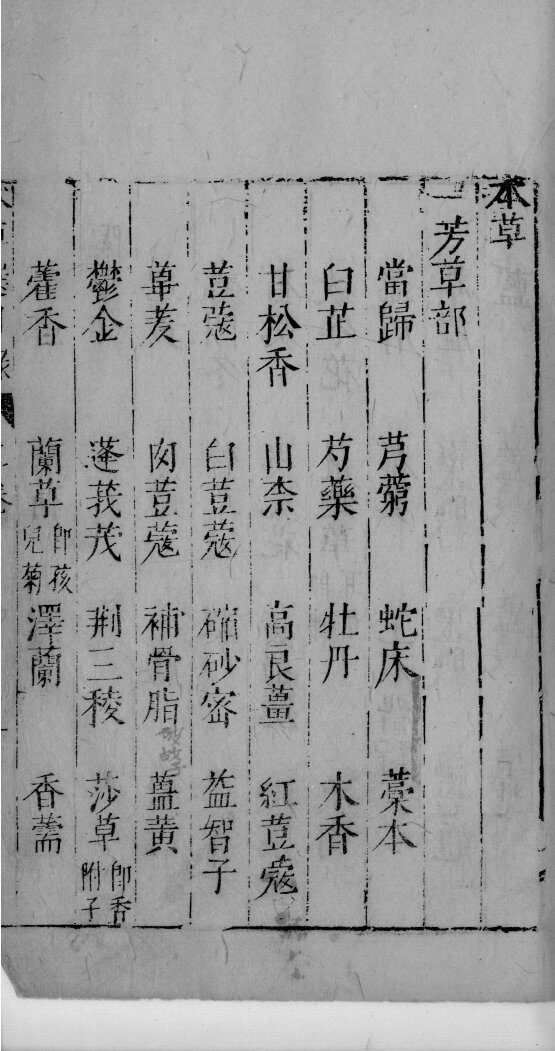 本草
一芳草部
當歸 芎藭 蛇床 藁本
白芷 芍藥 牡丹 木香
甘松香 山柰 高良薑 紅荳蔻
荳蔻 白荳蔻 砂密 益智子
蓽茇 肉荳蔻 補骨脂 薑黄
鬱金 蓬莪茂 荆三稜 莎草即香附子
藿香 蘭草即孩兒菊 澤蘭 香薷